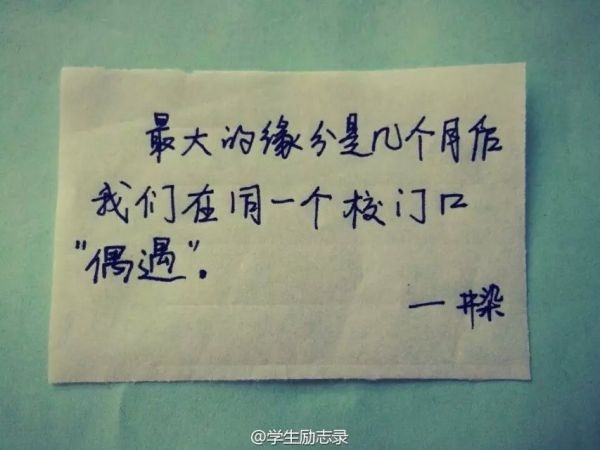 最大的缘分是几个月后
我们在同一个校门口
"偶遇".
— 井染
@学生励志录